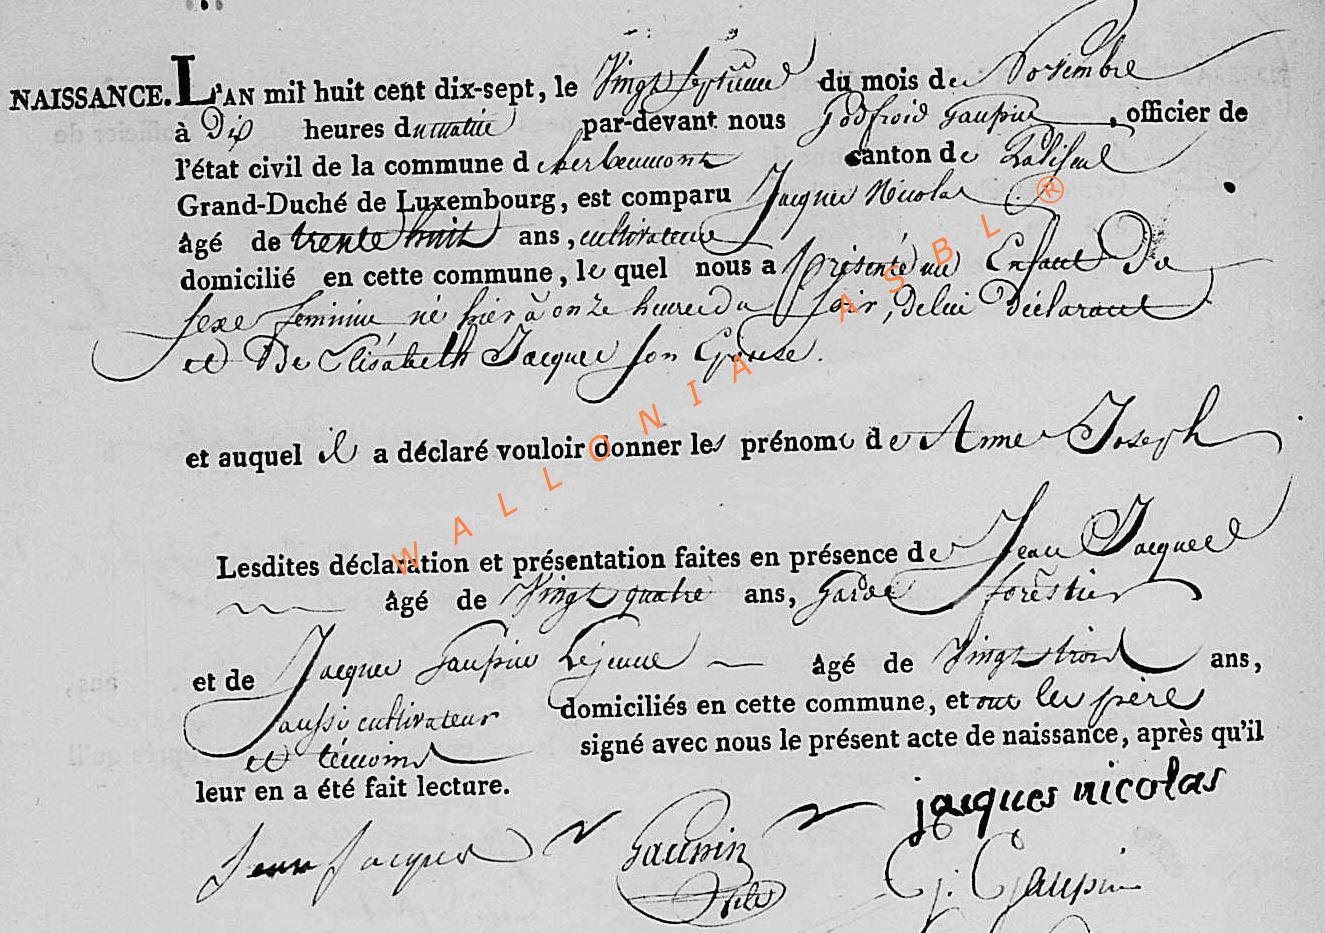 NAISSANCE. L'AN mil huit cent dix-sept, le Vingt septieme du mois de Novembre
à Dix heures du matin par-devant nous Godfroid Gaupin, officier de
l'état civil de la commune d'herbeumont canton de Paliseul
Grand-Duché de Luxembourg, est comparu Jacques Nicolas
âgé de trente huit ans, cultivateur
domicilié en cette commune, lequel nous a présenté un Enfant De
sexe feminin né hier à onze heures du soir, de lui Déclarant
et De Elisabeth Jacques son Epouse.
et auquel il a déclaré vouloir donner les prénoms de Anne Joseph
Lesdites déclaration et présentation faites en présence de Jean Jacques
âgé de Vingt quatre ans, Garde forestier
et de Jacques Gaupin Lejeune âgé de Vingt trois ans,
aussi cultivateur domiciliés en cette commune, et ont les père
et témoins signé avec nous le présent acte de naissance, après qu'il
leur en a été fait lecture.
jacques nicolas
Jean Jacques Gaupin fils G. Gaupin
WALLONIA ASBL ®